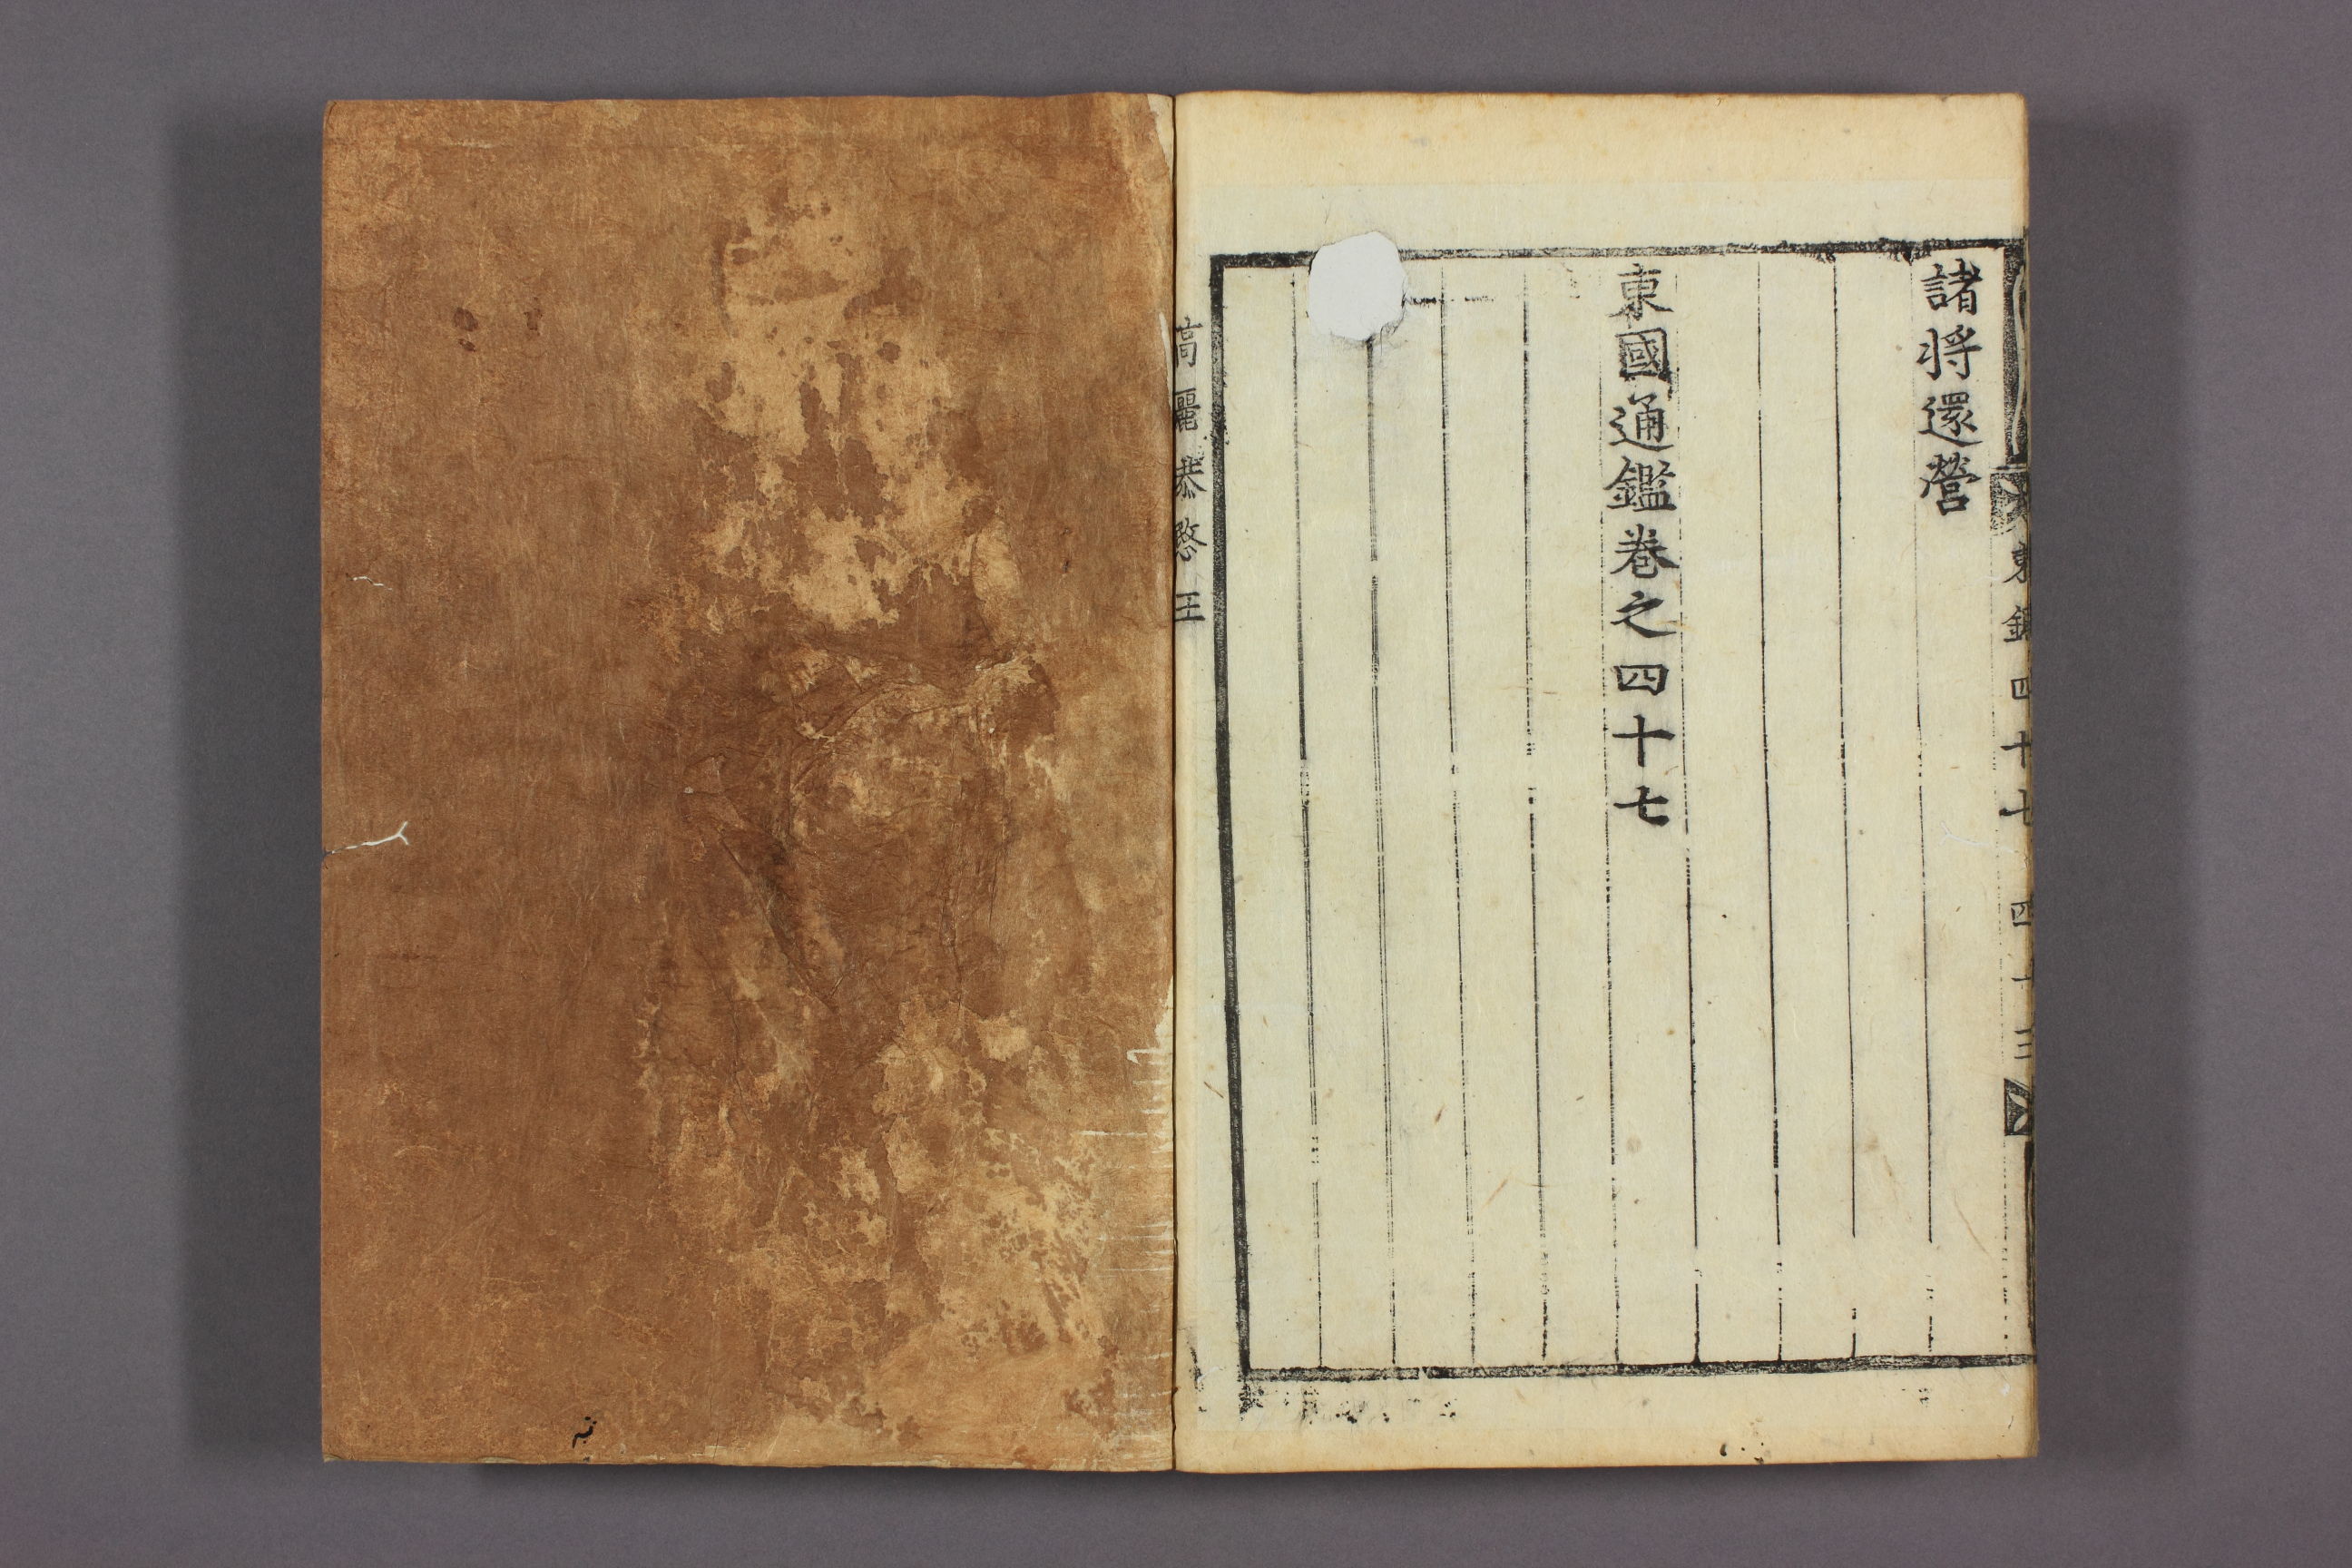 東鑑四十七 四十三
諸将還營
東國通鑑卷之四十七
高麗恭愍王